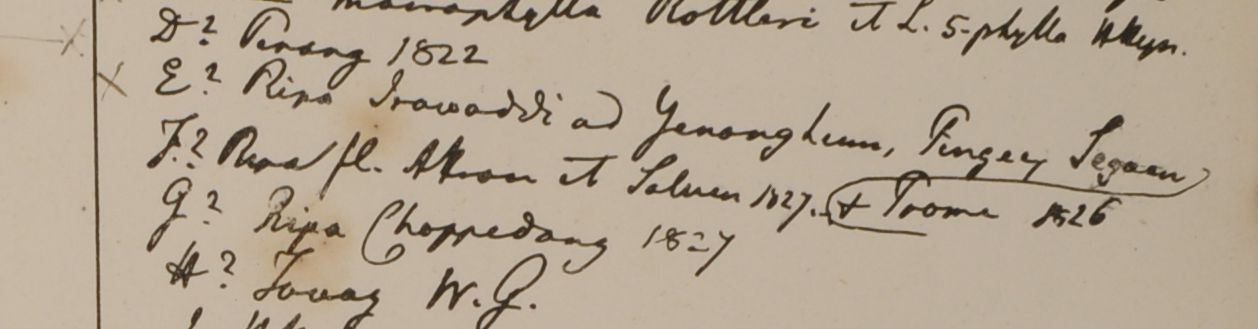 macrophylla Rottleri et L. 5-phylla HHeyn.
D? Penang 1822
E? Ripa Irawaddi ad Yenangheun, Pingey Segaen
F? Ripa fl. Attran et Saluen 1827. & Prome 1826
G? Ripa Chappedong 1827
H? Tavoy W.G.